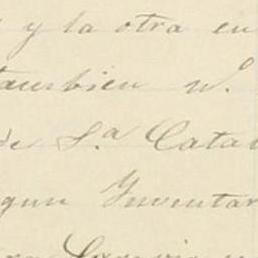 y la otra en
tambien n.º
de S.ª Catal
gun Inventar